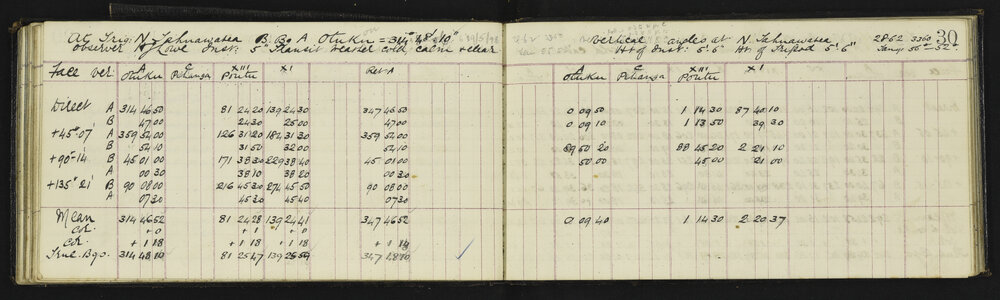 At Trig: N B.Bg A Otuku = 314° 48' 10"
Observer H Lowe Inst: 5" Transit weather cold, calm & clear
Face ver A Otuku C XIII Poutu XI Ret. A
Direct A 314 46 50 81 24 20 139 24 30 347 46 50
B 47 00 24 30 25 00 47 00
+45° 07' A 359 52 00 126 31 20 184 31 30 359 52 00
B 52 10 31 50 32 00 52 10
+90° 14' B 45 01 00 171 38 30 229 38 40 45 01 00
A 00 30 38 10 38 20 00 30
+135° 21' B 90 08 00 216 45 30 274 45 50 90 08 00
A 07 30 45 30 45 40 07 30
Mean 314 46 52 81 24 28 139 24 41 347 46 52
Cor. + 0 + 1 + 0
Cor. + 1 18 + 1 18 + 1 18 + 1 18
True Bgs. 314 48 10 81 25 47 139 25 59 347 48 10
Vertical angles at N 2862 3360 30
Ht of Inst: 5' 6" Ht of Tripod 5' 6"
A Otuku C XIII Poutu XI
0 09 50 1 14 30 87 40 10
0 09 10 1 13 50 39 30
89 50 20 88 45 20 2 21 10
50 00 45 00 21 00
0 09 40 1 14 30 2 20 37